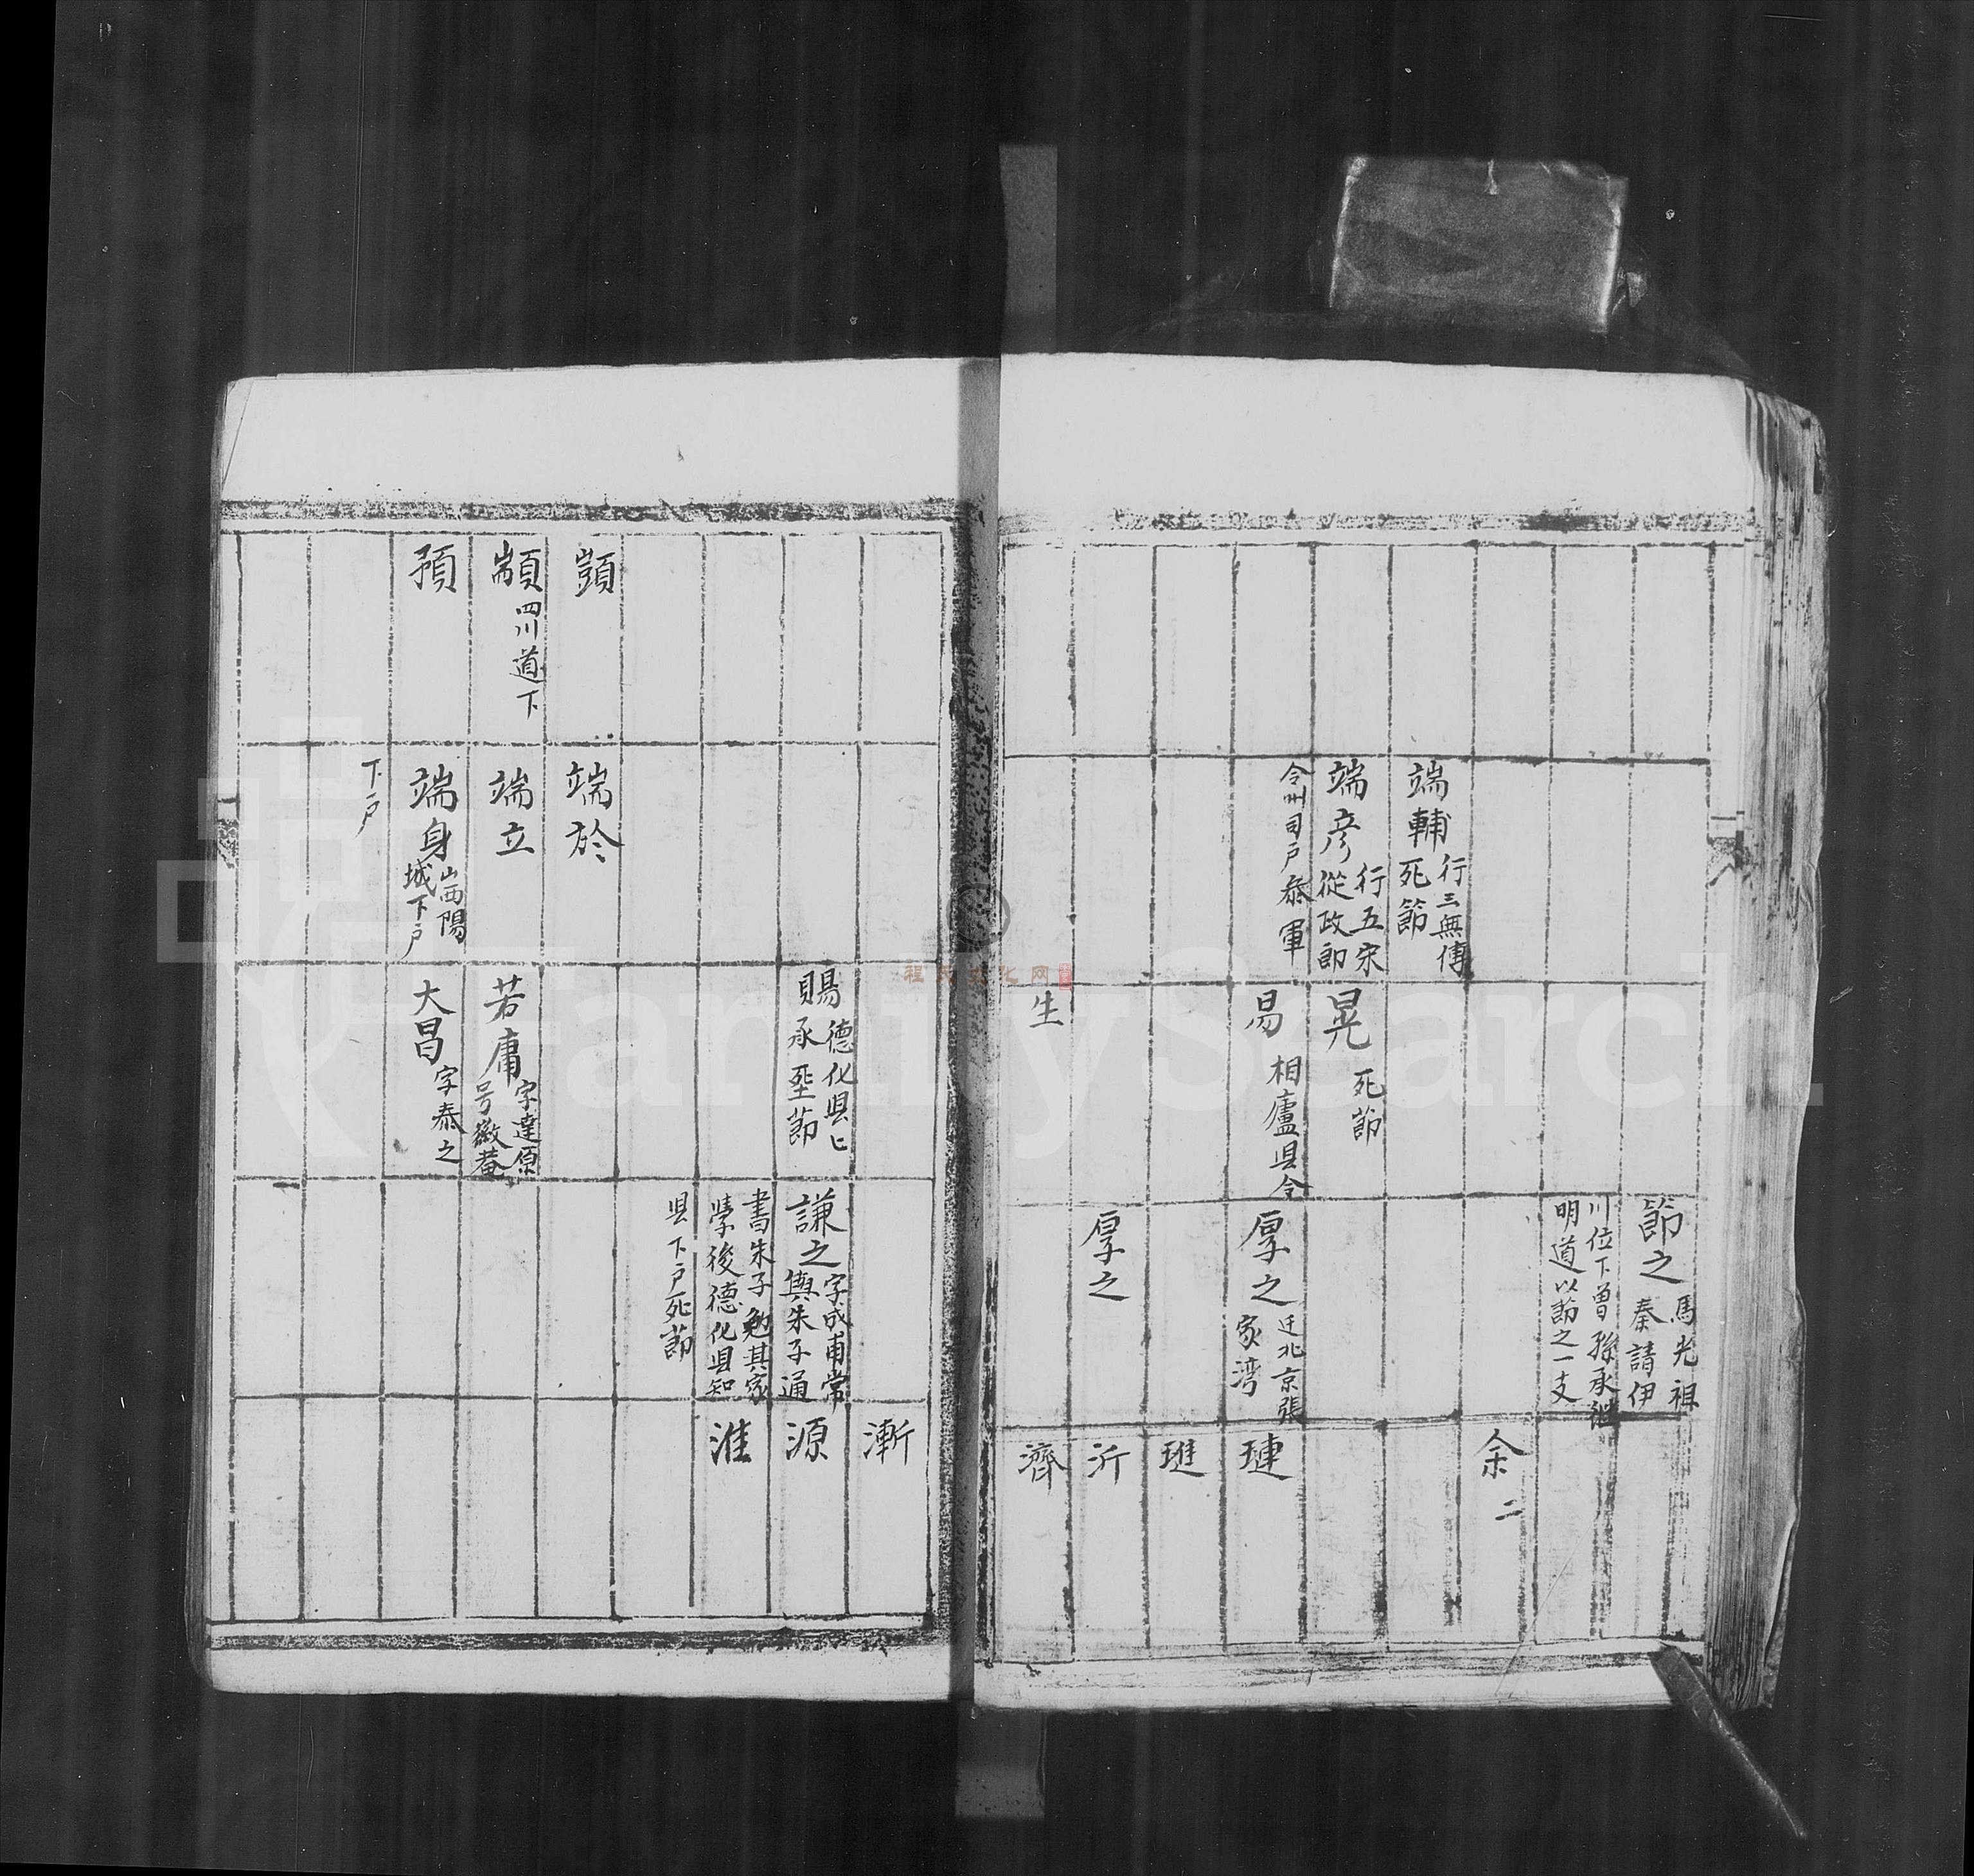 端輔
行三無傳
死節
端彦
行五宋
從政郎
令州司户叅軍
晃
死節
易
相廬县令
生
節之
馬光祖
奏請伊
川位下曾孫承継
明道以節之一支
厚之
迁北京張
家湾
厚之
余二
璉
琎
沂
濟
顗
顓
四川道下
預
端於
端立
端身
山西陽
城下户
下户
賜
德化县匕
承
節
若庸
字達原
号徽菴
大昌
字泰之
謙之
字成甫常
與朱子通
書朱子勉其家
學後德化县知
县下户死節
漸
源
淮
程氏文化网
FamilySearch